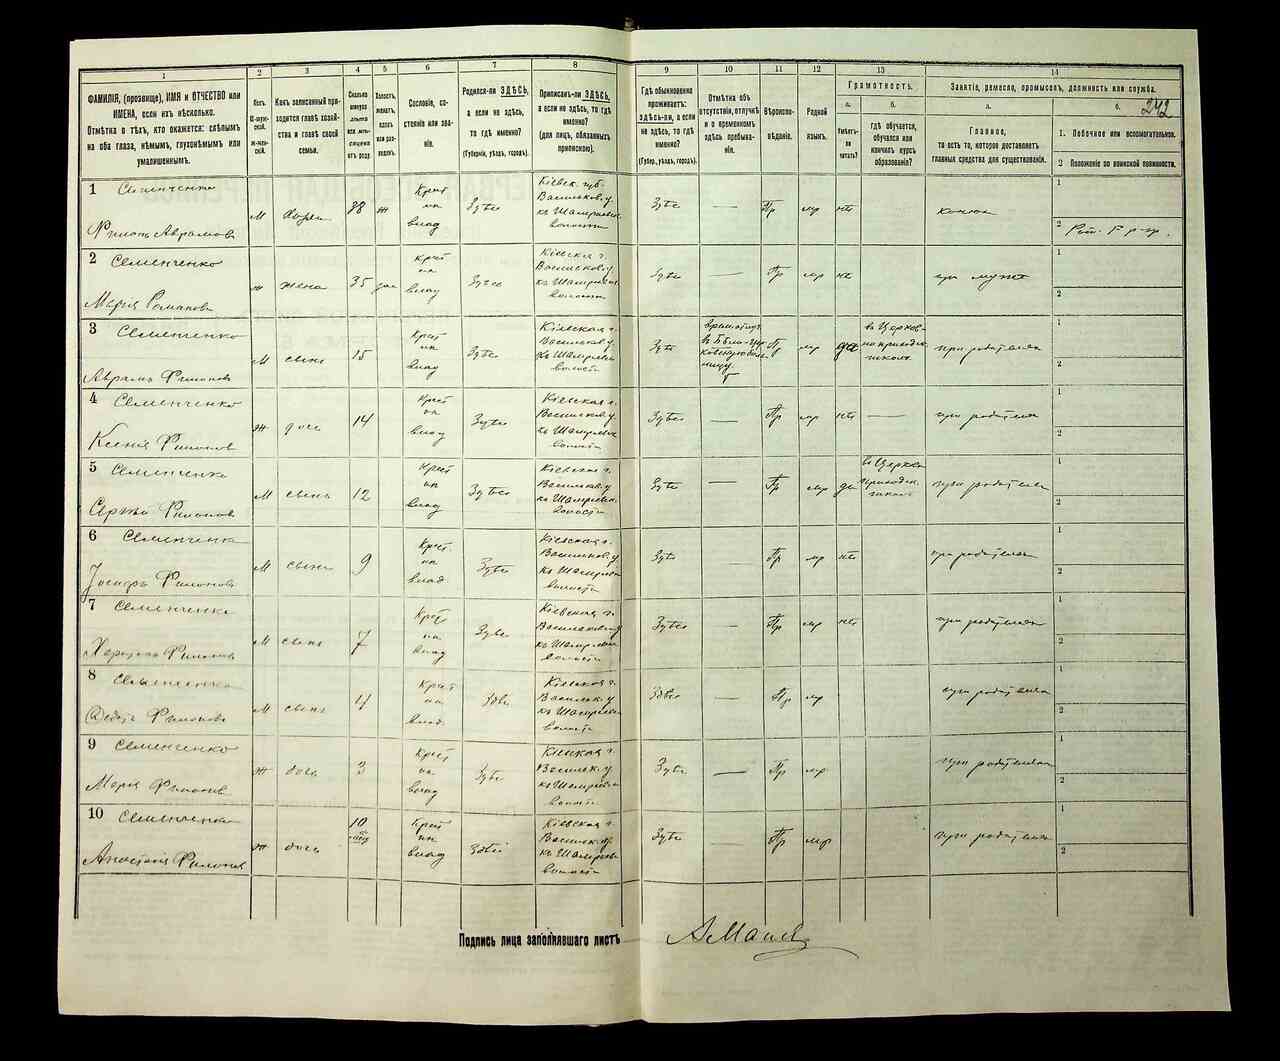 1 2 3 4 5 6 7 8 9 10 11 12 13 14
242
ФАМИЛІЯ, (прозвище), ИМЯ и ОТЧЕСТВО или
ИМЕНА, если ихъ нѣсколько.
Отмѣтка о тѣхъ, кто окажется: слѣпымъ
на оба глаза, нѣмымъ, глухонѣмымъ или
умалишеннымъ.
Полъ.
М-мужской.
Ж-женскій.
Какъ записанный приходится главѣ хозяйства и главѣ своей семьи.
Сколько минуло лѣтъ или мѣсяцевъ отъ роду.
Холостъ, женатъ, вдовъ или разведенъ.
Сословіе, состояніе или званіе.
Родился-ли ЗДѢСЬ,
а если не здѣсь,
то гдѣ именно?
(Губернія, уѣздъ, городъ).
Приписанъ-ли ЗДѢСЬ,
а если не здѣсь, то гдѣ
именно?
(для лицъ, обязанныхъ
припиской).
Гдѣ обыкновенно
проживаетъ:
здѣсь-ли, а если
не здѣсь, то гдѣ
именно?
(Губер., уѣздъ, городъ).
Отмѣтка объ
отсутствіи, отлучкѣ
и о временномъ
здѣсь пребываніи.
Вѣроисповѣданіе.
Родной
языкъ.
Грамотность.
а.
Умѣетъ-ли
читать?
б.
гдѣ обучается,
обучался или
кончилъ курсъ
образованія?
Занятіе, ремесло, промыселъ, должность или служба.
а.
Главное,
то есть то, которое доставляетъ
главныя средства для существованія.
б.
1. Побочное или вспомогательное.
2 Положеніе по воинской повинности.
1 Семенченко
Филонъ Аврамовъ
М 38 ж Крест из влад Здѣсь Кіевск. губ. Васильков. у. Здѣсь Пр мр нѣтъ
2 Семенченко
Марія Романова
ж жена 35 Крест из влад Здѣсь Кіевская г. Васильков. у. Здѣсь — Пр мр нѣ при мужѣ
3 Семенченко
Аврамъ Филоновъ
М сынъ 15 Крест из влад Здѣсь Кіевская г. Васильков. у. волости Здѣ Пр мр да въ Церковноприходск. школѣ при родителяхъ
4 Семенченко
Ксенія Филонов
ж дочь 14 Крест из влад Здѣсь Кіевская г. Васильков. у. волости Здѣсь — Пр мр нѣтъ — при родителя
5 Семенченко
Филоновъ
М сынъ 12 Крест из влад Здѣсь Кіевская г. Васильков. у. волости Здѣсь — Пр мр да при родителя
6 Семенченко
Іосифъ Филоновъ
М сынъ 9 Крест. из влад. Здѣсь Кіевская г. Васильков. у волости Здѣсь — Пр мр нѣтъ при родителях
7 Семенченко
Филоновъ
М сынъ 7 Крест из влад Здѣсь Кіевская г. Васильков. у волости Здѣсь — Пр мр нѣтъ при родителях
8 Семенченко
Филоновъ
М сынъ 4 Крест из влад. Здѣсь Кіевская г. Васильк. у волости Здѣсь — Пр мр при родителя
9 Семенченко
Марія Филонов
Ж дочь 3 Крест из влад Здѣсь Кіевская г. Васильк. у. волости Здѣсь — Пр мр при родителях
10 Семенченко
Анастасія Филонов
Ж дочь 10 Крест из влад Здѣсь Кіевская г. Васильк. у. волости Здѣсь — Пр мр при родителях
Подпись лица заполнявшаго листъ